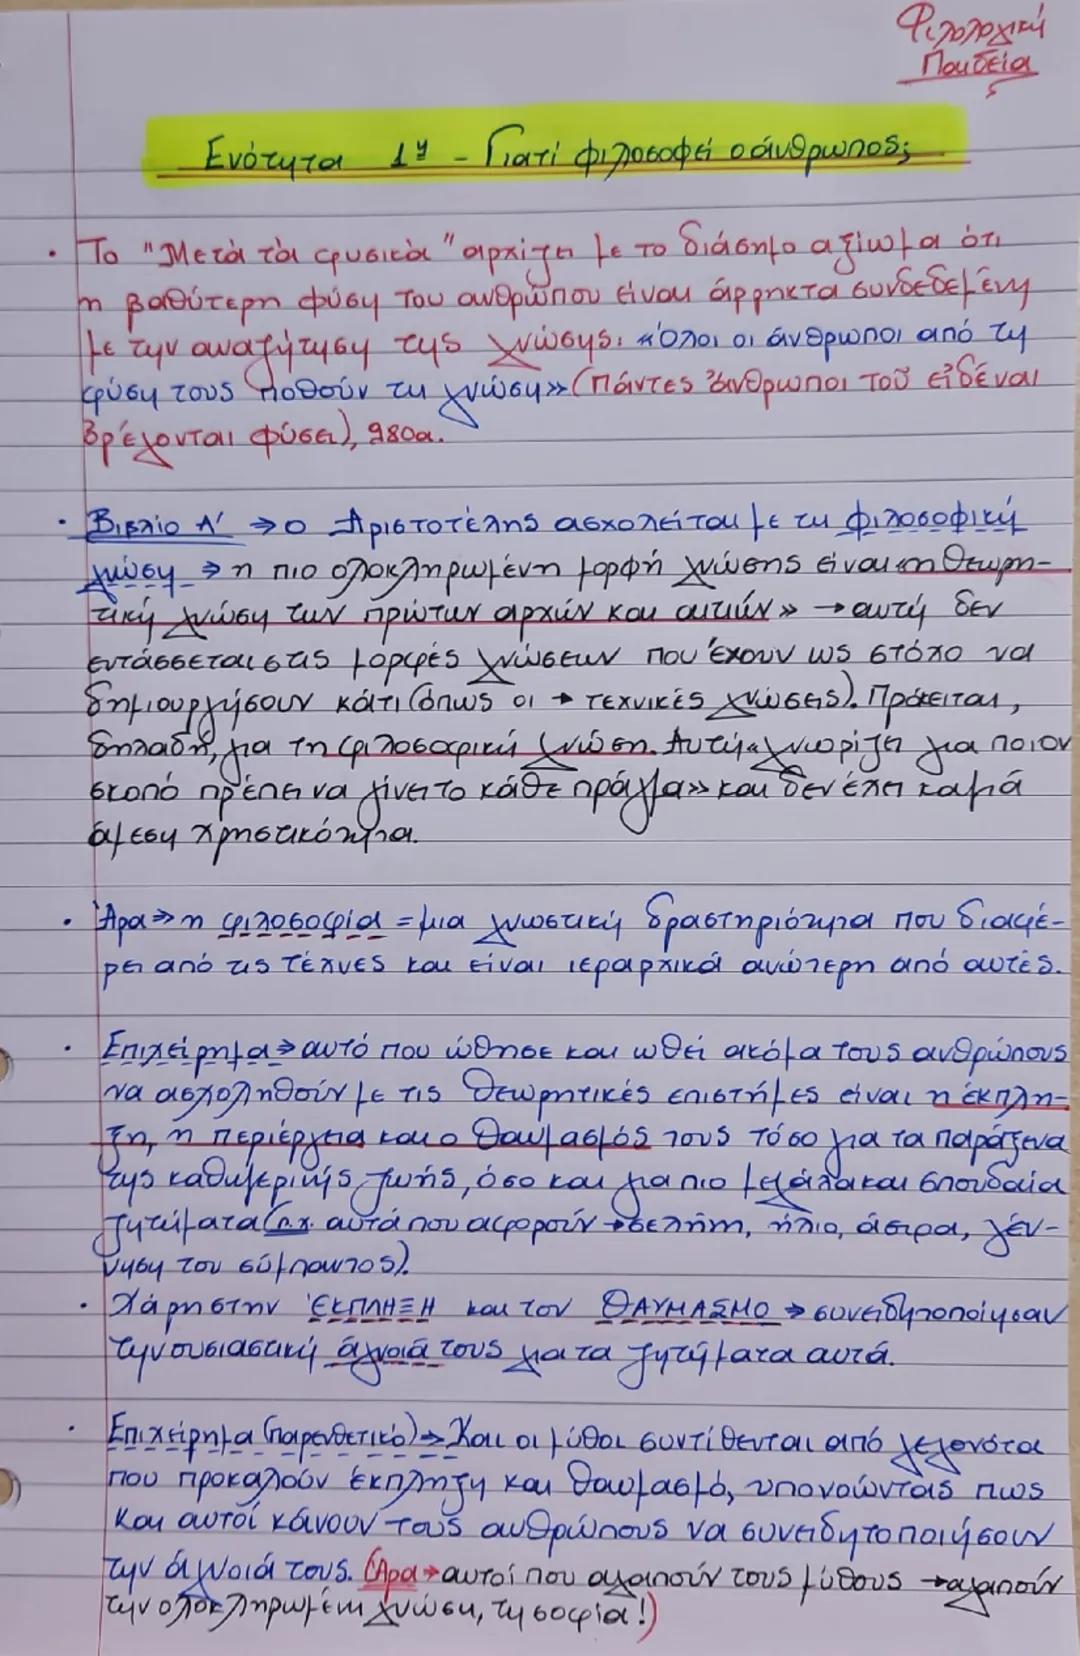 Φιλολογική
Παιδεία
Ενότητα 1η - Γιατί φιλοσοφεί ο άνθρωπος;
· Το "Μετὰ τὰ φυσικὰ" αρχίζει με το διάσημο αξίωμα ότι
η βαθύτερη φύση του ανθρώπου είναι άρρηκτα συνδεδεμένη
με την αναζήτηση της γνώσης: «Όλοι οι άνθρωποι από τη
φύση τους ποθούν τη γνώση» (Πάντες ἄνθρωποι τοῦ εἰδέναι
ὀρέγονται φύσει), 980a.
· Βιβλίο Α' ⇒ ο Αριστοτέλης ασχολείται με τη φιλοσοφική
γνώση ⇒ η πιο ολοκληρωμένη μορφή γνώσης είναι «η θεωρη-
τική γνώση των πρώτων αρχών και αιτιών» → αυτή δεν
εντάσσεται στις μορφές γνώσεων που έχουν ως στόχο να
δημιουργήσουν κάτι (όπως οι → τεχνικές γνώσεις). Πρόκειται,
δηλαδή, για τη φιλοσοφική γνώση. Αυτή «γνωρίζει για ποιον
σκοπό πρέπει να γίνει το κάθε πράγμα» και δεν έχει καμιά
άμεση χρηστικότητα.
· Άρα ⇒ η φιλοσοφία = μια γνωστική δραστηριότητα που διαφέ-
ρει από τις τέχνες και είναι ιεραρχικά ανώτερη από αυτές.
· Επιχείρημα ⇒ αυτό που ώθησε και ωθεί ακόμα τους ανθρώπους
να ασχοληθούν με τις θεωρητικές επιστήμες είναι η έκπλη-
ξη, η περιέργεια και ο θαυμασμός τους τόσο για τα παράξενα
της καθημερινής ζωής, όσο και για πιο μεγάλα και σπουδαία
ζητήματα (π.χ. αυτά που αφορούν → σελήνη, ήλιο, άστρα, γέν-
νηση του σύμπαντος).
· Χάρη στην ΈΚΠΛΗΞΗ και τον ΘΑΥΜΑΣΜΟ → συνειδητοποίησαν
την ουσιαστική άγνοιά τους για τα ζητήματα αυτά.
· Επιχείρημα (παρενθετικό) → Και οι μύθοι συντίθενται από γεγονότα
που προκαλούν έκπληξη και θαυμασμό, υπονοώντας πως
και αυτοί κάνουν τους ανθρώπους να συνειδητοποιήσουν
την άγνοιά τους. (Άρα → αυτοί που αγαπούν τους μύθους → αγαπούν
την ολοκληρωμένη γνώση, τη σοφία!)